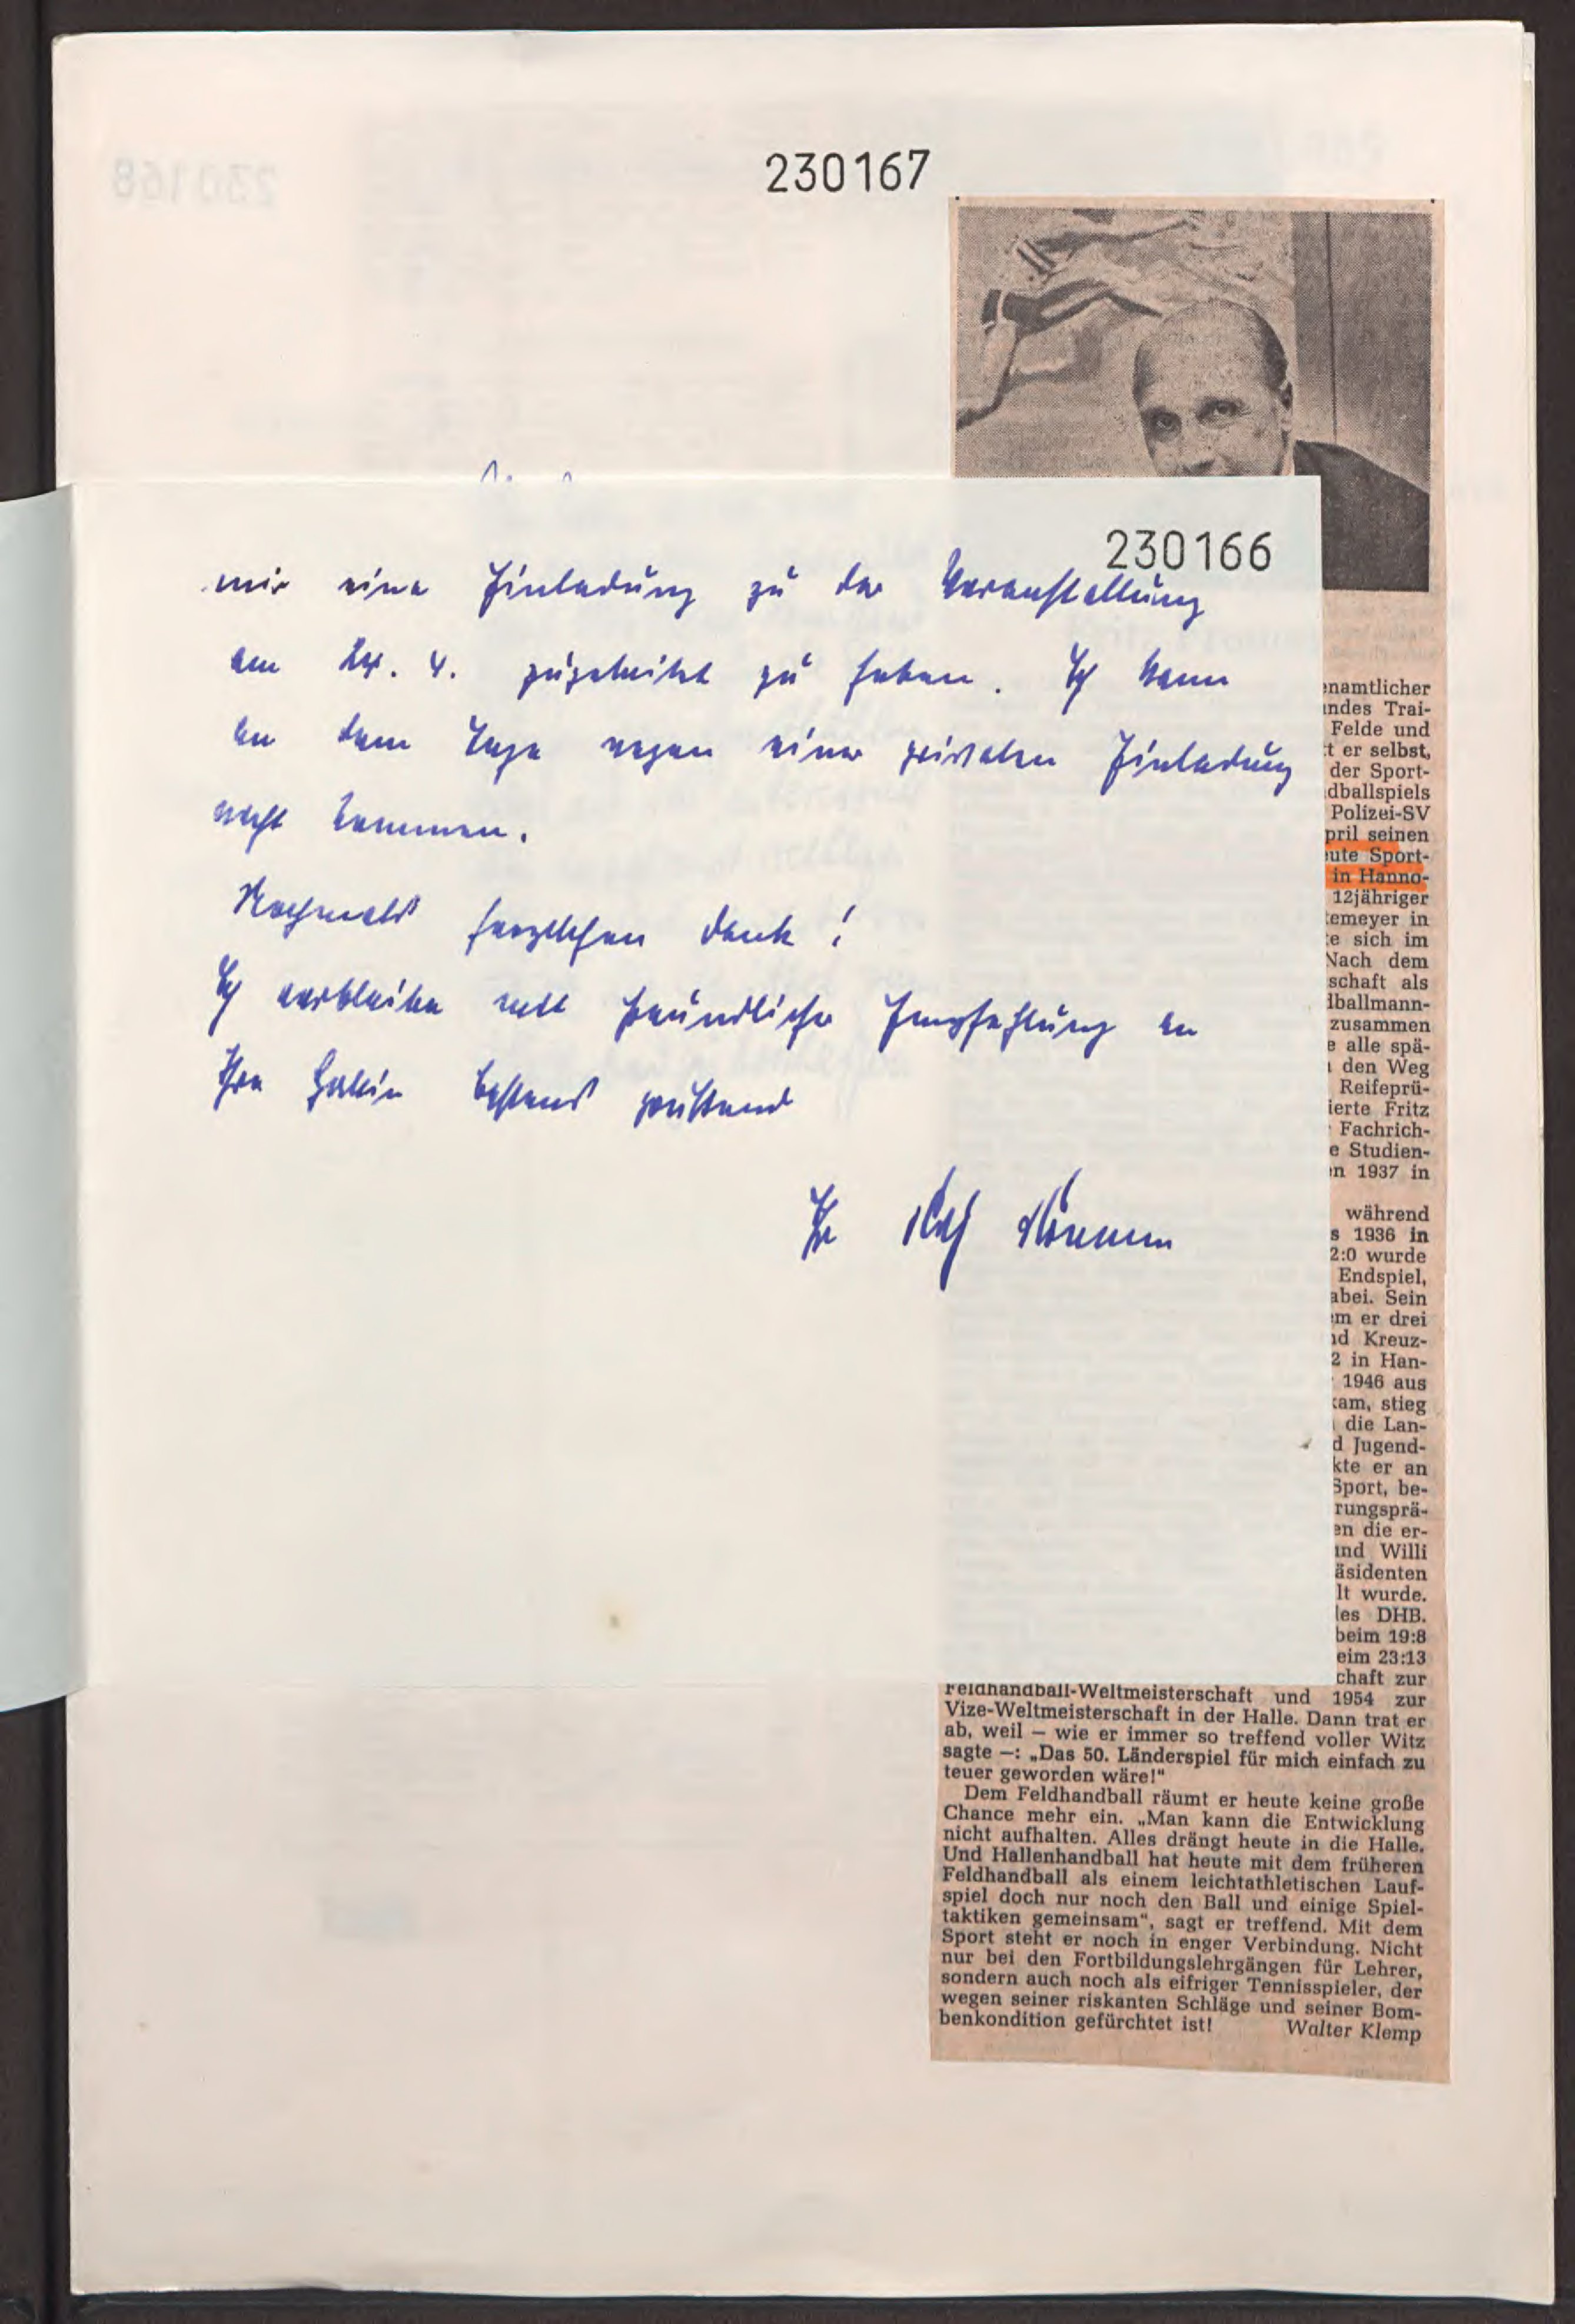 230168
230167
230166
mir eine Einladung zu der Veranstaltung
am 24. 4. zugeleitet zu haben. Ich kann
an dem Tage wegen einer privaten Einladung
nicht kommen.
Nochmals herzlichen Dank!
Ich verbleibe mit freundlicher Empfehlung an
Ihre Gattin bestens grüßend
Ihr
enamtlicher
ndes Trai-
Felde und
t er selbst,
der Sport-
dballspiels
Polizei-SV
pril seinen
eute Sport-
in Hanno-
12jähriger
temeyer in
e sich im
Nach dem
schaft als
dballmann-
zusammen
e alle spä-
den Weg
Reifeprü-
ierte Fritz
Fachrich-
e Studien-
en 1937 in
während
s 1936 in
2:0 wurde
Endspiel,
abei. Sein
em er drei
nd Kreuz-
2 in Han-
1946 aus
kam, stieg
die Lan-
d Jugend-
kte er an
Sport, be-
rungsprä-
en die er-
und Willi
äsidenten
lt wurde.
des DHB.
beim 19:8
eim 23:13
chaft zur
Feldhandball-Weltmeisterschaft und 1954 zur
Vize-Weltmeisterschaft in der Halle. Dann trat er
ab, weil — wie er immer so treffend voller Witz
sagte —: „Das 50. Länderspiel für mich einfach zu
teuer geworden wäre!"
Dem Feldhandball räumt er heute keine große
Chance mehr ein. „Man kann die Entwicklung
nicht aufhalten. Alles drängt heute in die Halle.
Und Hallenhandball hat heute mit dem früheren
Feldhandball als einem leichtathletischen Lauf-
spiel doch nur noch den Ball und einige Spiel-
taktiken gemeinsam", sagt er treffend. Mit dem
Sport steht er noch in enger Verbindung. Nicht
nur bei den Fortbildungslehrgängen für Lehrer,
sondern auch noch als eifriger Tennisspieler, der
wegen seiner riskanten Schläge und seiner Bom-
benkondition gefürchtet ist! Walter Klemp